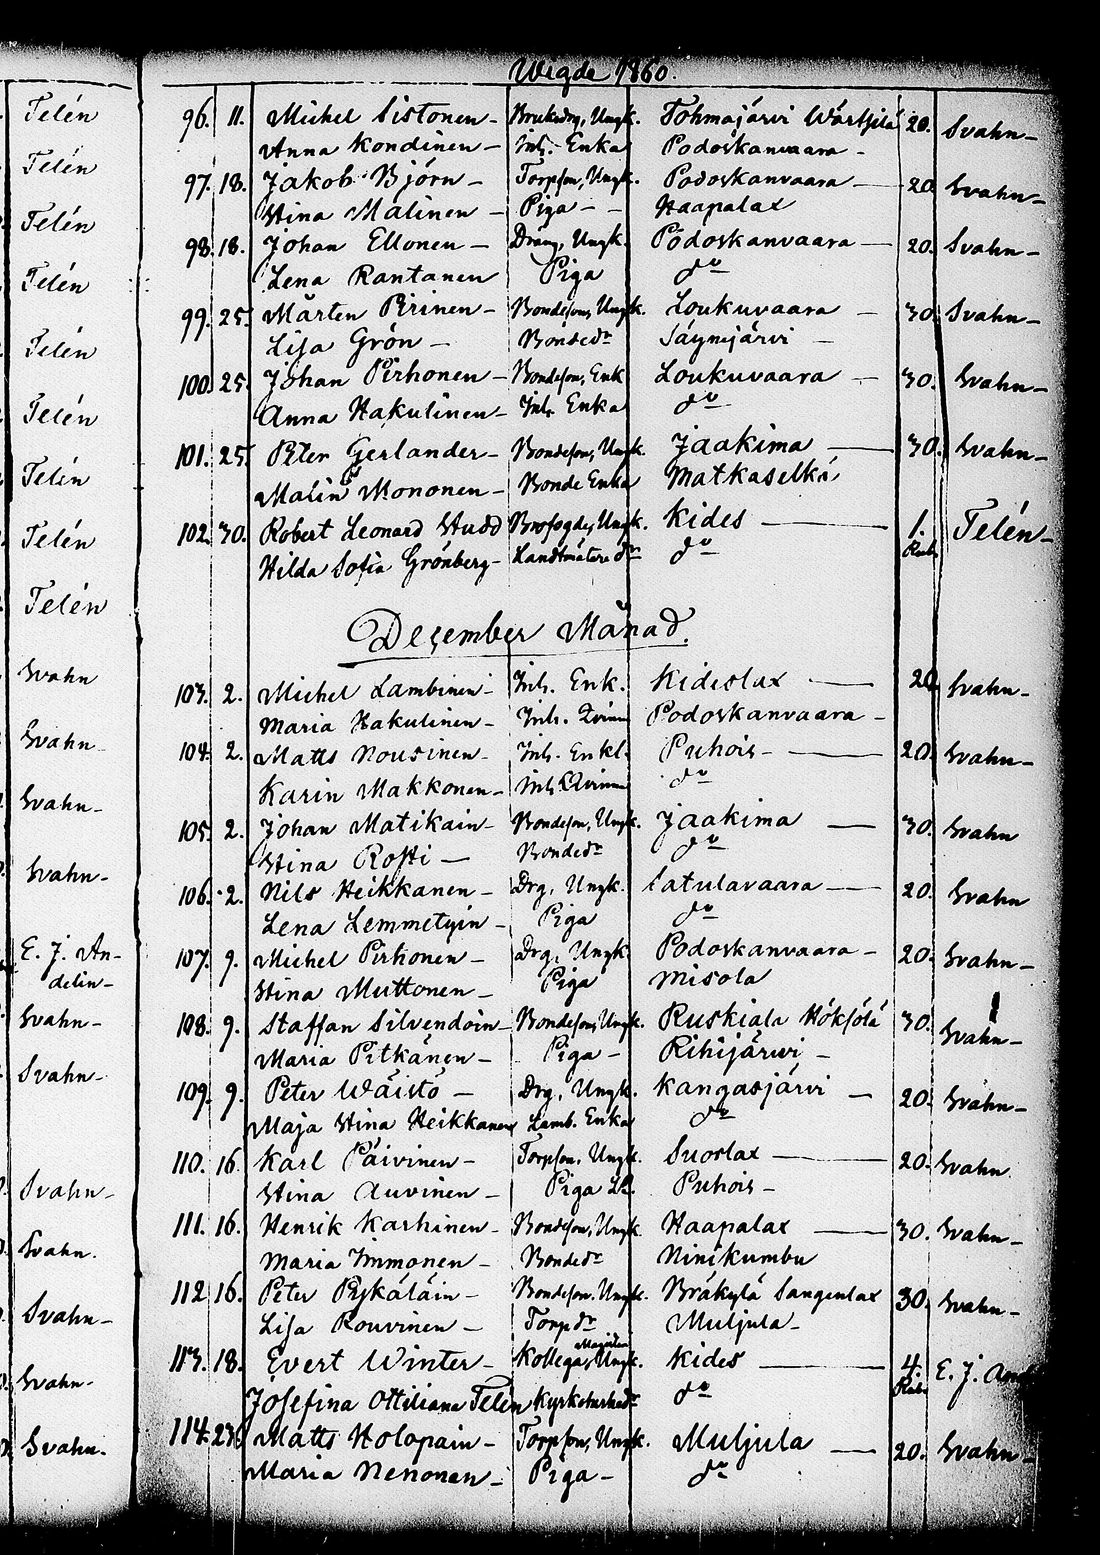 Wigde 1860.
Telén
Telén
Telén
Telén
Telén
Telén
Telén
Telén
Telén
Svahn
Svahn
Svahn-
Svahn-
E. J. An-
delin-
Svahn-
Svahn-
Svahn-
Svahn.
Svahn-
Svahn-
Svahn.
96. 11. Michel Sistonen- Bruksdrg, Ungk. Tohmajärvi Wärtsilä 20. Svahn-
Anna Kondinen- Inh. Enka Podoskanvaara-
97. 18. Jakob Björn- Torpson, Ungk. Podoskanvaara- 20. Svahn-
Stina Malinen- Piga- Haapalax
98. 18. Johan Ellonen- Dräng, Ungk. Podoskanvaara- 20. Svahn-
Lena Rantanen Piga do
99. 25. Mårten Pirinen- Bondeson, Ungk. Loukuvaara- 30. Svahn-
Lisa Grön- Bondedr Säynejärvi-
100. 25. Johan Pirhonen- Bondeson, Enk Loukuvaara- 30. Svahn-
Anna Hakulinen- Inh. Enka do
101. 25. Peter Gerlander- Bondeson, Ungk. Jaakima- 30. Svahn-
Malin Mononen- Bonde Enka Matkaselkä
102. 30. Robert Leonard Studd Brofogde, Ungk. Kides- 1. Rub. Telén-
Hilda Sofia Grönberg- Landtmätare dr do
December Månad.
103. 2. Michel Lambinen- Inh. Enk. Kideslax- 20. Svahn-
Maria Hakulinen- Inh. Qvinna Podoskanvaara-
104. 2. Matts Nousinen- Inh. Enkl. Puhois- 20. Svahn-
Karin Makkonen- Inh Qvinna do
105. 2. Johan Matikain- Bondeson, Ungk. Jaakima- 30. Svahn
Stina Rosti- Bondedr do
106. 2. Nils Heikkanen- Drg, Ungk. Satulavaara- 20. Svahn
Lena Lemmetyin- Piga do
107. 9. Michel Pirhonen- Drg, Ungk. Podoskanvaara- 20. Svahn-
Stina Muttonen- Piga Misola
108. 9. Staffan Silvendoin- Bondeson, Ungk. Ruskiala Höksölä 30. Svahn-
Maria Pitkänen- Piga- Rihijärwi-
109. 9. Peter Wäistö- Drg, Ungk. Kangasjärvi- 20. Svahn-
Maja Stina Heikkanen Lamb. Enka do
110. 16. Karl Päivinen- Torpson, Ungk. Suorlax- 20. Svahn
Stina Auvinen- Piga Puhois-
111. 16. Henrik Karhinen- Bondeson, Ungk. Haapalax- 30. Svahn-
Maria Immonen- Bondedr Niinikumbu
112 16. Peter Pykäläin- Bondeson, Ungk. Bräkylä Sangenlax 30. Svahn-
Lisa Rouvinen- Torpdr Muljula-
113. 18. Evert Winter- Kollega, Ungk. Kides- 4. Rub. E. J. And
Josefina Ottiliana Telén Kyrkoherdedr do
114. 23. Matts Holopain- Torpson, Ungk. Muljula- 20. Svahn-
Maria Nenonen- Piga- do